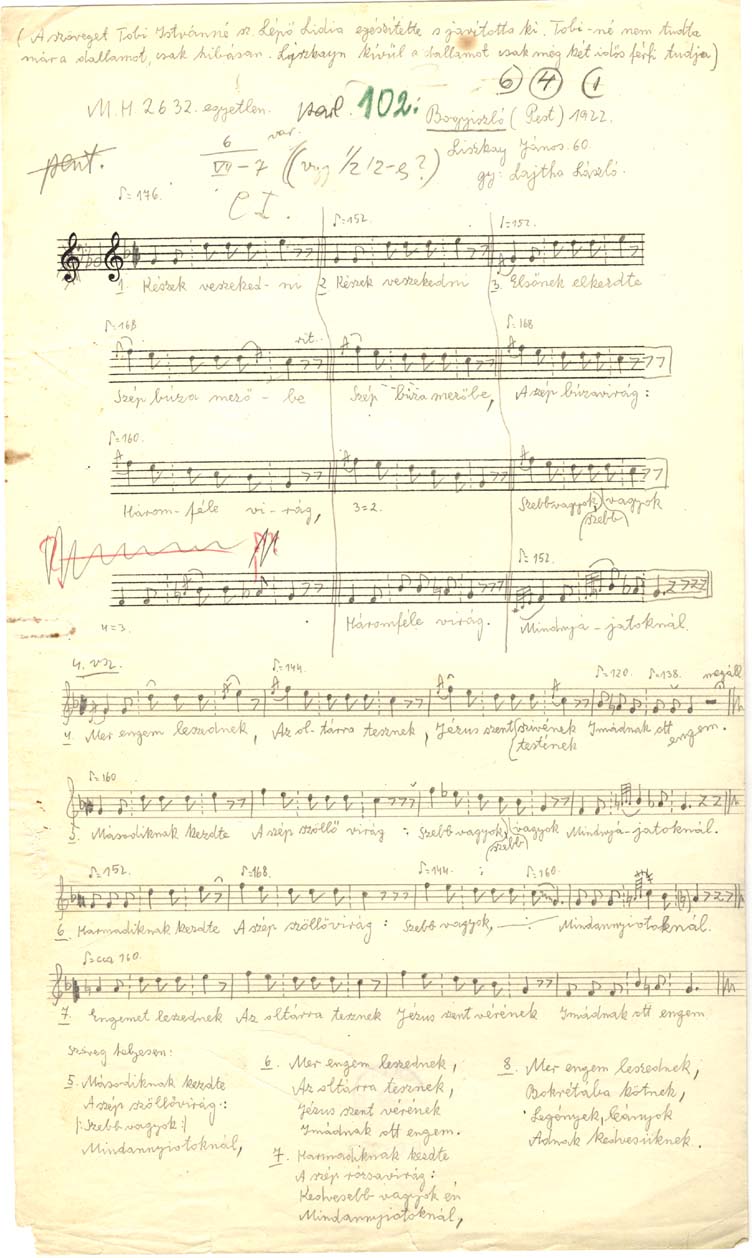 (A szöveget Tobi Istvánné sz. Lépő Lidia egészítette s javította ki. Tobi-né nem tudta
már a dallamot, csak hibásan. Liszkayn kívül a dallamot csak még két idős férfi tudja)
6 4 1
M.H. 2632. egyetlen. parl. 102. Bogyiszló (Pest) 1922.
6 var. Liszkay János. 60.
pent. VII – 7 ((vagy 1/2 12-es?) gy: Lajtha László.
♪=176. C I. ♪=152. ♪=152.
1. Készek veszeked-ni 2 Készek veszekedni 3. Elsőnek elkezdte
♪=168 rit. ♪=168
Szép búza mező - be Szép búza mezőbe, A szép búzavirág:
♪=160.
Három-féle vi-rág, 3=2. Szebb vagyok, vagyok
(szebb)
♪=152.
4=3. Háromféle virág. Mindnyá-jatoknál.
4. vsz. ♪=144. ♪=120. ♪=138. megáll
4. Mer engem leszednek, Az ol-tárra tesznek, Jézus szent (szivének Imádnak ott engem.
testének
♪=160
5. Másodiknak kezdte A szép szöllő virág: Szebb vagyok, vagyok Mindnyá-jatoknál.
(szebb)
♪=152. ♪=168. ♪=144. ♪=160.
6. Harmadiknak kezdte A szép szöllővirág: Szebb vagyok, Mindannyiotoknál.
♪=cca 160.
7. Engemet leszednek Az oltárra tesznek Jézus szent vérének Imádnak ott engem
Szöveg teljesen:
5. Másodiknak kezdte
A szép szöllővirág:
|: Szebb vagyok :|
Mindannyiotoknál,
6. Mer engem leszednek,
Az oltárra tesznek,
Jézus szent vérének
Imádnak ott engem.
7. Harmadiknak kezdte
A szép rózsavirág:
Kedvesebb vagyok én
Mindannyiotoknál,
8. Mer engem leszednek,
Bokrétába kötnek,
Legények, leányok
Adnak kedvesüknek.